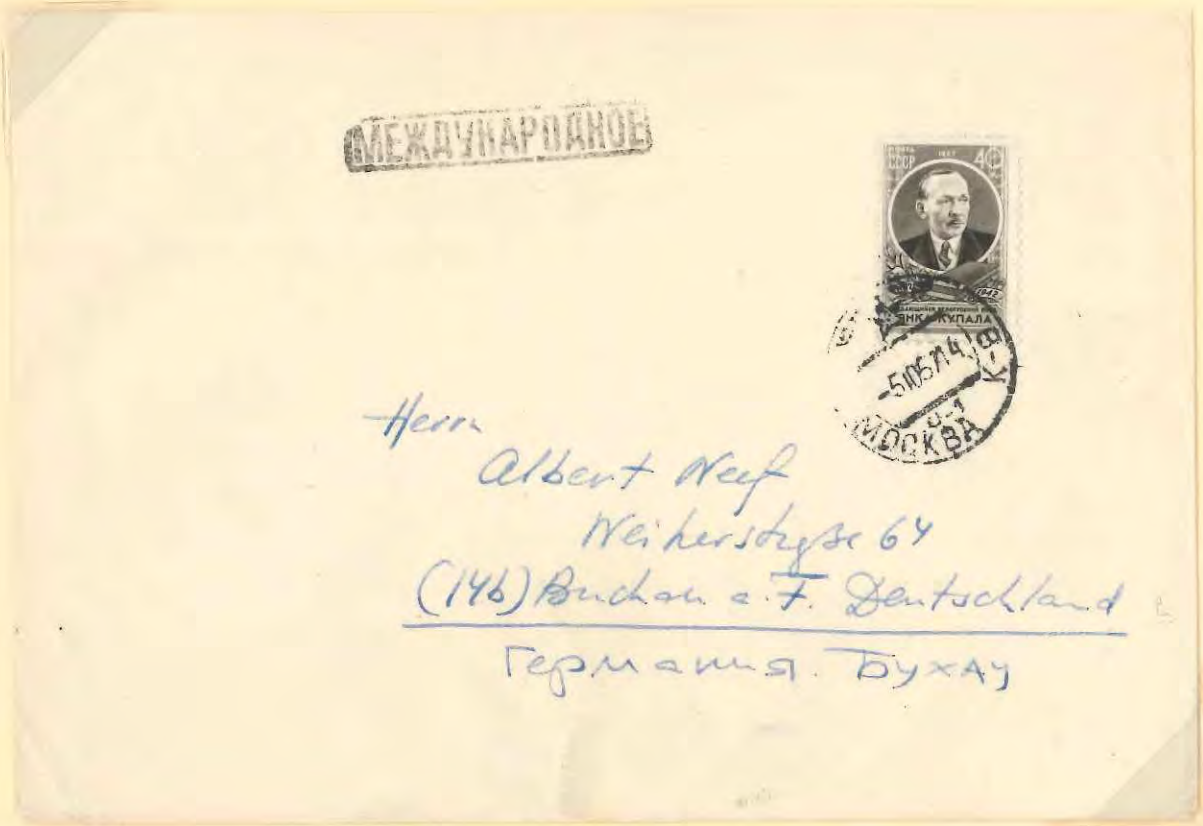 МЕЖДУНАРОДНОЕ
ПОЧТА 1957 40
СССР
1942
ЯНКА КУПАЛА
-51057 14
К-9
МОСКВА
Herrn
Albert Neef
Weiherstraße 64
(14b) Buchau a. F. Deutschland
Германия. Бухау